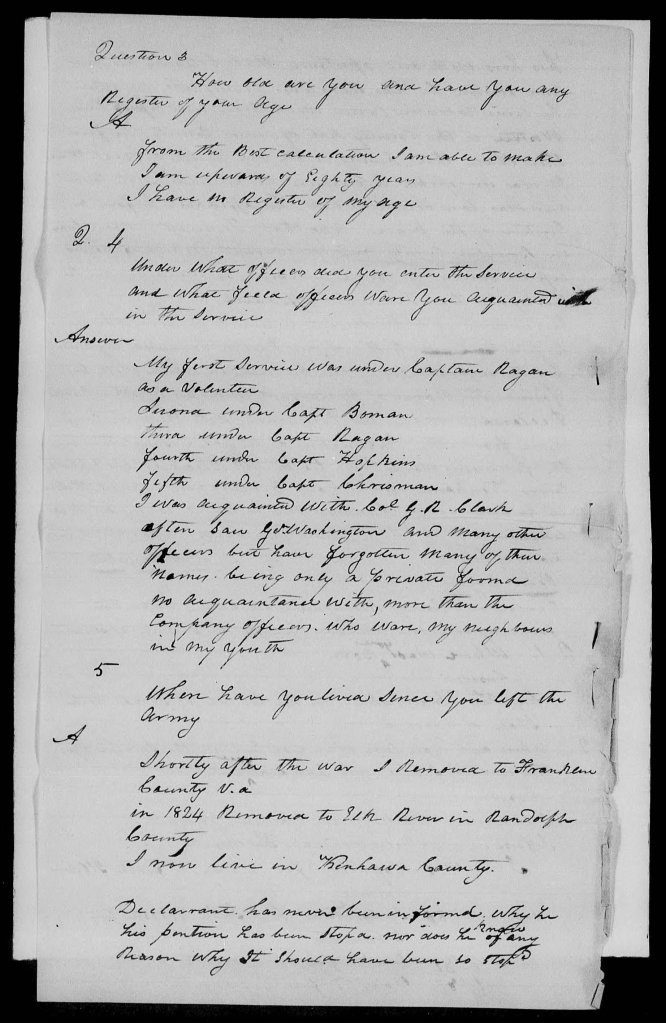 Question 3
How old are you and have you any
Register of your Age
A
from the Best calculation I am able to make
I am upwards of Eighty years
I have no Register of my age
Q. 4
Under What officers did you enter the Service
and What feeld officers Ware You Acquainted with
in the Service
Answer
My first Service was under Captain Ragan
as a Volenter
Second under Capt Boman
third under Capt Ragan
fourth under Capt Hopkins
fifth under Capt Chrisman
I was acquainted With Col G. R. Clark
often saw Gl Washington and Many other
officers but have forgotten Many of their
Names. being only a private formd
no acquaintance with, more than the
Company officers. Who Ware, my Neighbours
in my Youth
5
Where have You lived Since You left the
Army
A
Shortly after the War I Removed to Franklin
County V.a
in 1824 Removed to Elk River in Randolph
County
I now live in Kenhawa County.
Declarrant has never been informd. Why he
his pention has been Stopd. nor does he know of any
Reason Why It Should have been So Stopd